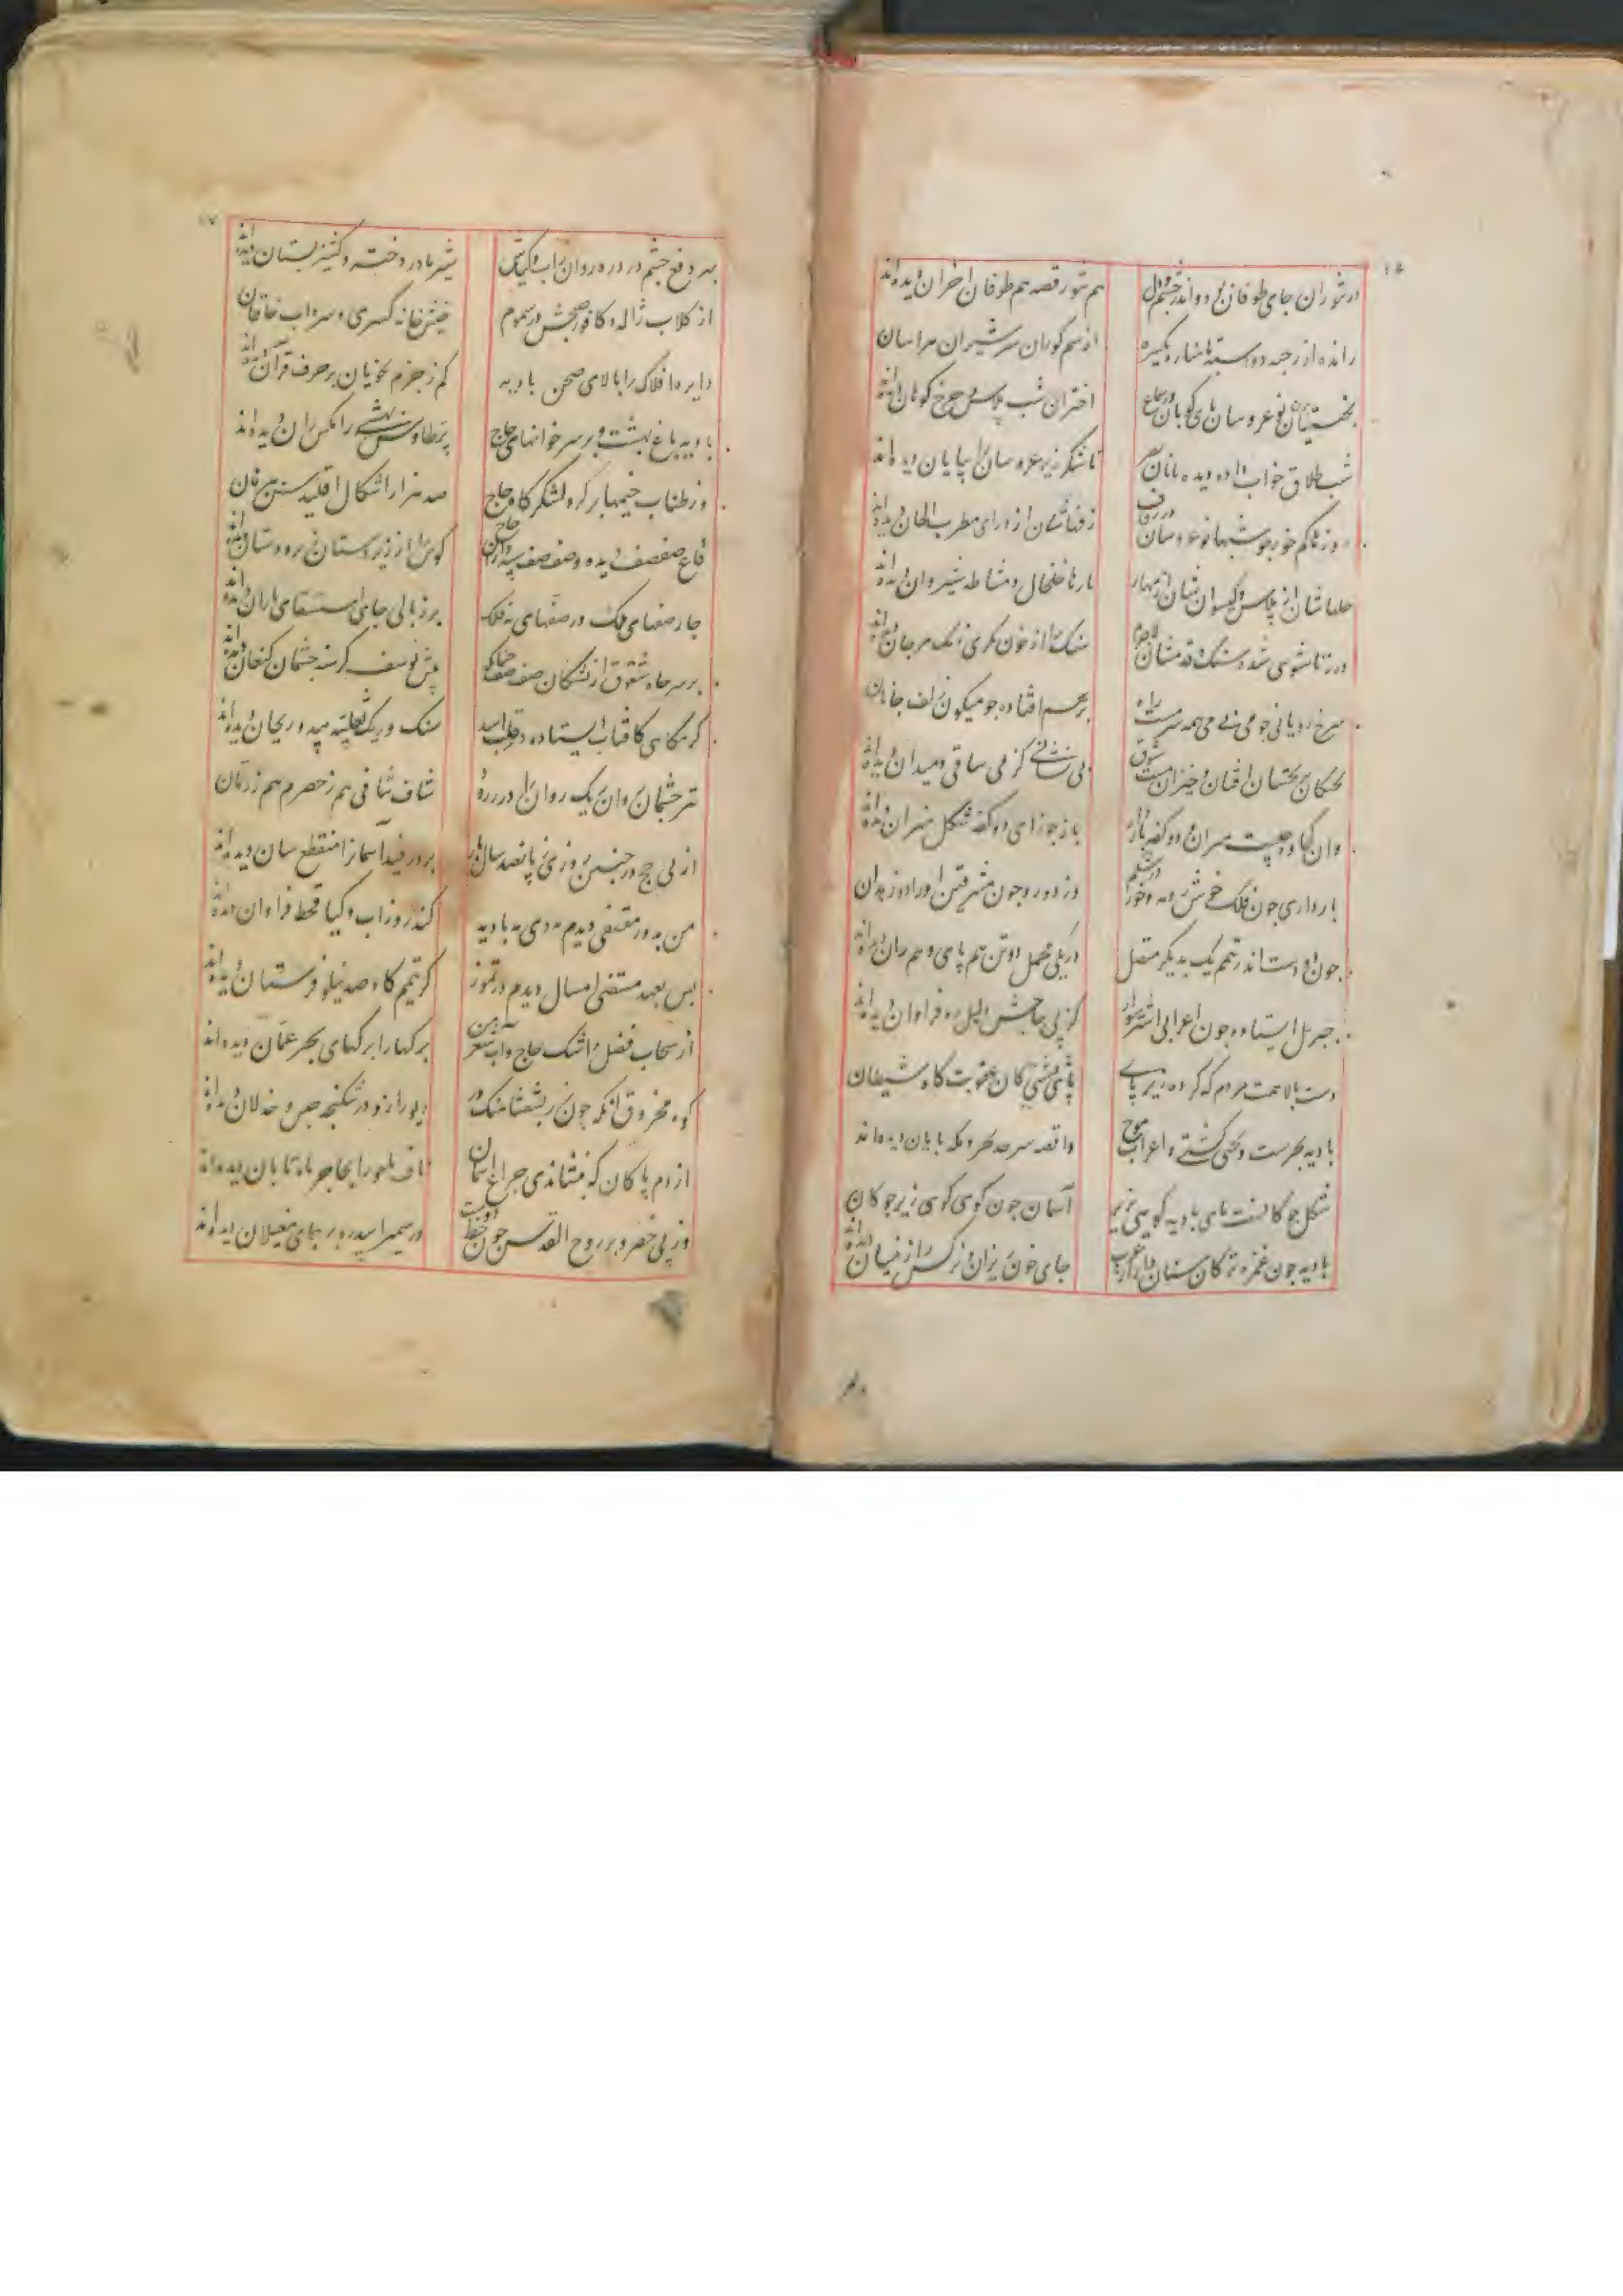 ۱۶
در تنوران جای طوفان بود و اندر چشم و دل هم تنور قصه هم طوفان احزان دیده‌اند
رانده از رحبه دواسبه تا مناره یکسره از سم کوران سر شیران هراسان
بختیان نوعروسان پای کوبان در سماع اختران شب پلاس و چرخ کوهان دیده‌اند
شب طلاق خواب داده دیده بانان بصر تا شکرریز عروسان بیابان دیده‌اند
روزها کم خور چو شبها نوعروسان در زفاف زقه‌شان از درای مطرب الحان دیده‌اند
حلها شان از پلاس و کیسوان شان از مهار پارها خلخال و مشاطه شتروان دیده‌اند
در زناشوی شده سنک و قدمشان لاجرم سنک را از خون بکری رنک مرجان دیده‌اند
سرخ رویانی جو می بی می همه سرمست راه بر هم افتاده جو میکون زلف جانان
بختیان افتان و خیزان مست شوق بی نشانی کز می ساقی و میدان دیده‌اند
وان کجاوه چیست میزان دو کفه باردار باز جوزای دو کفه شکل میزان دیده‌اند
بارداری جون فلک خوش رو مه و خور در شکم وز دو رو جون مشرقین او را دو زهدان
جون دو دست اندر تیمم یک بدیکر متصل در یکی محمل دو تن هم پای و هم ران دیده‌اند
جبریل استاده جون اعرابی اشتر سوار کز پی حاجش دلیل ره فراوان دیده‌اند
دست بالا همت مردم که کرده زیر پای پای شیبی کان عقوبت کاه شیطان
بادیه بحرست و بختی کشتی و اعراب موج واقصه سر حد بحر و مکه پایان دیده‌اند
شکل جوکانست پای بادیه کوییی زیر آسمان جون کوی کوی زیر جوکان
بادیه جون غمزه ترکان سنان دار از عرب جای خون ریزان نرکس زار نیسان دیده‌اند
۱۷
بهر دفع چشم درد رهروان ز آب و کیاش شیر مادر دختر و کشنیز پستان دیده‌اند
از کلاب ژاله و کافور صبحش در سموم خیش خانه کسری و سرداب خاقان
دایره افلاک را بالای صحن بادیه کم ز جزم نحویان بر حرف قرآن دیده‌اند
بادیه باغ بهشت و بر سر خوانهای حاج پر طاوس بهشتی را مکس ران دیده‌اند
وز طناب خیمها بر کرد لشکرکاه حاج صد هزار اشکال اقلیدس برهان
قاع صفصف دیده و صف صف سپه داران حاج کوس را از زیر دستان زیردستان دیده‌اند
جار صفهای ملک در صفهای نه فلک بر زبالی جای استسقای باران دیده‌اند
بر سر جاه شقوق از تشنکان صف صف جنانک پیش یوسف کرسنه جشمان کنعان دیده‌اند
کرمکاهی کافتاب استاده در قلب اسد سنک و ریک ثعلبیه بید و ریحان دیده‌اند
تیر چشمان روان ریک روان را در زرود شاف شافی هم ز حصرم هم ز رمان
از پی حج در جنین روزی ز پانصد سال باز بر در فید آسمان را منقطع سان دیده‌اند
من بدور مقتفی دیدم به دی مه بادیه کندرو ز آب و کیا قحط فراوان دیده‌اند
پس بعهد مستضی امسال دیدم در تموز کز تیمم کاه صد نیلوفرستان دیده‌اند
از سحاب فضل و اشک حاج و آب شعر من برکها را برکهای بحر عمان دیده‌اند
کوه محروق آنکه جون زر بشفشاهنک در دیو را زو در شکنجه حبس و خذلان دیده‌اند
از دم پاکان که بنشاندی جراغ آسمان ناف باحورا بحاجر ماه تابان دیده‌اند
وز پی خضر و پر روح القدس جون خط دوست در سمیرا سدره بر جای مغیلان دیده‌اند